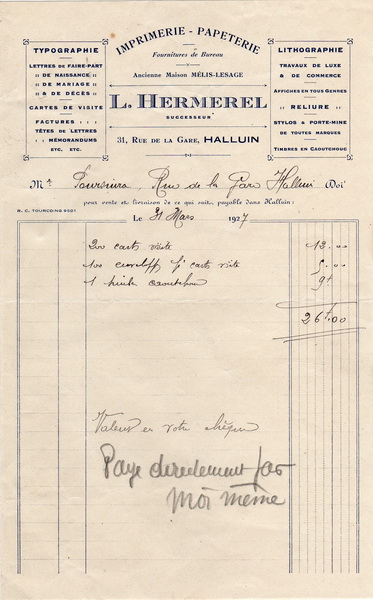 IMPRIMERIE - PAPETERIE
Fournitures de Bureau
Ancienne Maison MÉLIS-LESAGE
L. HERMEREL
SUCCESSEUR
31, RUE DE LA GARE, HALLUIN
TYPOGRAPHIE
LETTRES DE FAIRE-PART
" DE NAISSANCE "
" DE MARIAGE "
" & DE DÉCÈS "
CARTES DE VISITE
FACTURES " " "
TÊTES DE LETTRES
" MÉMORANDUMS
ETC. ETC.
LITHOGRAPHIE
TRAVAUX DE LUXE
& DE COMMERCE
AFFICHES EN TOUS GENRES
" RELIURE "
STYLOS & PORTE-MINE
DE TOUTES MARQUES
TIMBRES EN CAOUTCHOUC
M Rue de la Gare Halluin Doit
pour vente et livraison de ce qui suit, payable dans Halluin :
R. C. TOURCOING 9321
Le 31 Mars 1927
200 cartes visite 12.00
100 p/ cartes visite 5.00
1 caoutchouc 9f
26f.00
Valeur en votre chèque
Payé directement par
moi même